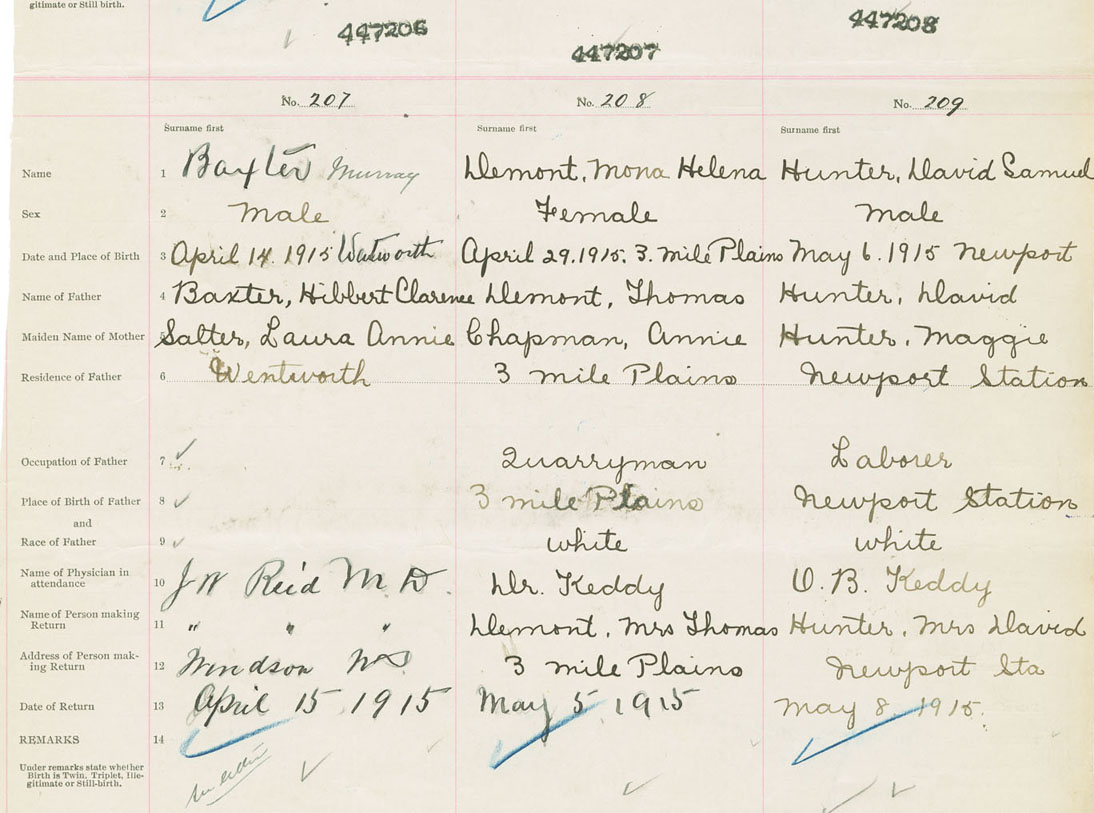 gitimate or Still birth.
447206 447207 447208
No. 207 No. 208 No. 209
Surname first Surname first Surname first
Name 1 Baxter Murray Demont, Mona Helena Hunter, David Samuel
Sex 2 Male Female Male
Date and Place of Birth 3 April 14. 1915 Wentworth April 29.1915. 3. mile Plains May 6. 1915 Newport
Name of Father 4 Baxter, Hibbert Clarence Demont, Thomas Hunter, David
Maiden Name of Mother 5 Salter, Laura Annie Chapman, Annie Hunter, Maggie
Residence of Father 6 Wentworth 3 mile Plains Newport Station
Occupation of Father 7 Quarryman Laborer
Place of Birth of Father 8 3 mile Plains Newport Station
and
Race of Father 9 white white
Name of Physician in
attendance 10 J W Reid M.D. Dr. Keddy O. B. Keddy
Name of Person making
Return 11 " " " Demont, Mrs Thomas Hunter, Mrs David
Address of Person mak-
ing Return 12 Windsor NS 3 mile Plains Newport Sta
Date of Return 13 April 15 1915 May 5 1915 May 8, 1915.
REMARKS 14
Under remarks state whether
Birth is Twin, Triplet, Ille-
gitimate or Still-birth.